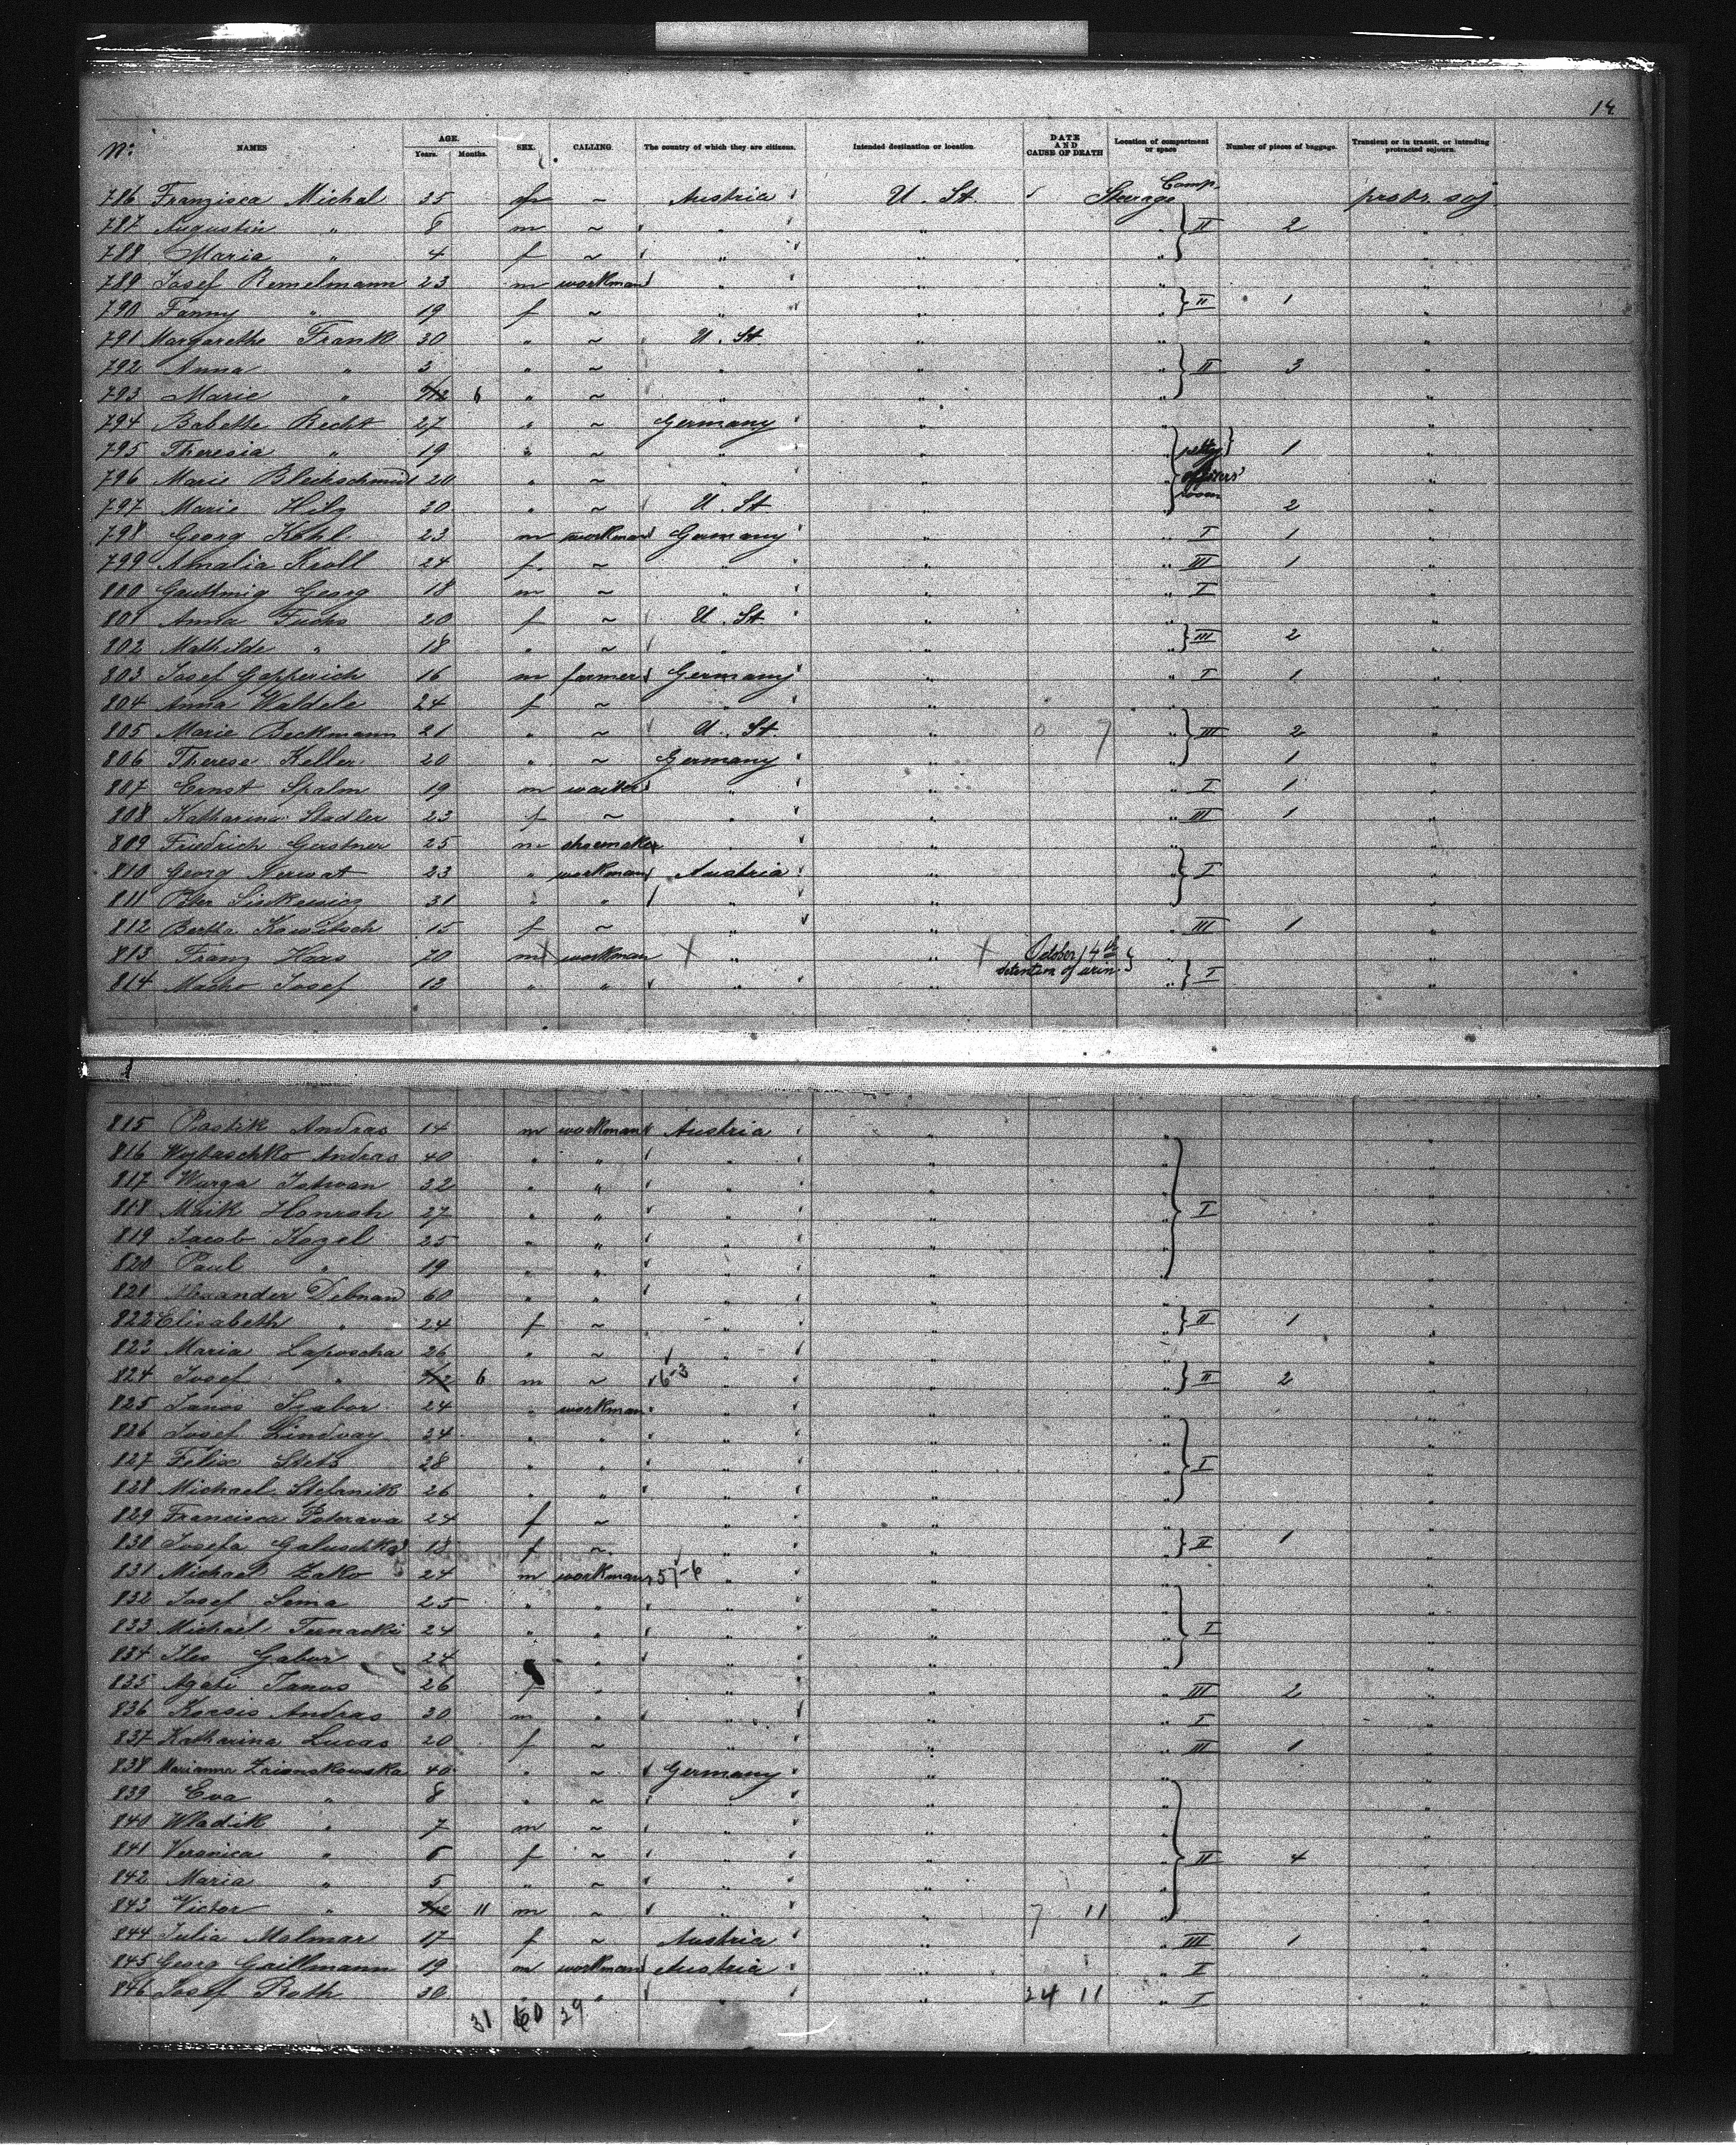 14
No. NAMES AGE. Years. Months. SEX. CALLING. The country of which they are citizens. Intended destination or location. DATE AND CAUSE OF DEATH Location of compartment or space Number of pieces of baggage. Transient or in transit, or intending protracted sojourn.
786 Franzisca Michal 35 f ~ Austria U. St. Steerage Comp. protr. soj
787 Augustin " 8 m ~ " " " II 2 "
788 Maria " 4 f ~ " " " "
789 Josef Remelmann 23 m workman " " " "
790 Fanny " 19 f ~ " " " II 1 "
791 Margarethe Frank 30 " ~ U. St. " " "
792 Anna " 3 " ~ " " " II 3 "
793 Marie " 6/12 6 " ~ " " " "
794 Babette Recht 27 " ~ Germany " " "
795 Theresia " 19 " ~ " " " petty 1 "
796 Marie Blechschmidt 20 " ~ " " " officers' "
797 Marie Hilz 30 " ~ U. St. " " room 2 "
798 Georg Kohl 23 m workman Germany " " I 1 "
799 Amalia Kroll 24 f ~ " " " III 1 "
800 Georg 18 m ~ " " " I "
801 Anna Fuchs 20 f ~ U. St. " " "
802 Mathilde " 18 " ~ " " " III 2 "
803 Josef Gapperich 16 m farmer Germany " " I 1 "
804 Anna Waldele 24 f ~ " " " "
805 Marie Beckmann 21 " ~ U. St. " 0 7 " III 2 "
806 Therese Keller 20 " ~ Germany " " 1 "
807 Ernst Spalm 19 m waiter " " " I 1 "
808 Katharina Stadler 23 f ~ " " " III 1 "
809 Friedrich Gerstner 25 m shoemaker " " " "
810 Georg 23 " workman Austria " " I "
811 Peter 31 " " " " " "
812 Bertha Kowitsch 15 f ~ " " " III 1 "
813 Franz Haas 70 m workman " " October 14th "
detention of urin.
814 Macho Josef 13 " " " " " I "
815 Pastik Andras 14 m workman Austria " " "
816 Andras 40 " " " " " "
817 Wurga 32 " " " " " "
818 27 " " " " " I "
819 Jacob Kozel 25 " " " " " "
820 Paul " 19 " " " " " "
821 Alexander Debnand 60 " " " " " "
822 Elisabeth " 24 f ~ " " " II 1 "
823 Maria Laposcha 26 " ~ " " " "
824 Josef " 6/12 6 m ~ 6-3 " " " II 2 "
825 Janos Szabor 24 " workman " " " "
826 Josef Lindvay 24 " " " " " "
827 Felix Stets 28 " " " " " I "
828 Michael Stefanik 26 " " " " " "
829 Francisca Potorava 24 f ~ " " " "
830 Josefa Galuschka 18 f ~ " " " II 1 "
831 Michael Zako 24 m workman 57-6 " " " "
832 Josef Sema 25 " " " " " "
833 Michael 24 " " " " " I "
834 Gabor 24 " " " " " "
835 Agati Janos 26 f " " " " III 2 "
836 Andras 30 m " " " " I "
837 Katharina Lucas 20 f ~ " " " III 1 "
838 Marianna Zaionskowska 40 " ~ Germany " " "
839 Eva " 8 " ~ " " " "
840 Wladik " 7 m ~ " " " "
841 Veronica " 6 f ~ " " " II 4 "
842 Maria " 5 " ~ " " " "
843 Victor " 11/12 11 m ~ " " 7 11 " "
844 Julia Molnar 17 f ~ Austria " " III 1 "
845 Georg Gaillmann 19 m workman Austria " " I "
846 Josef Roth 30 " " " " 24 11 " I "
31 60 29